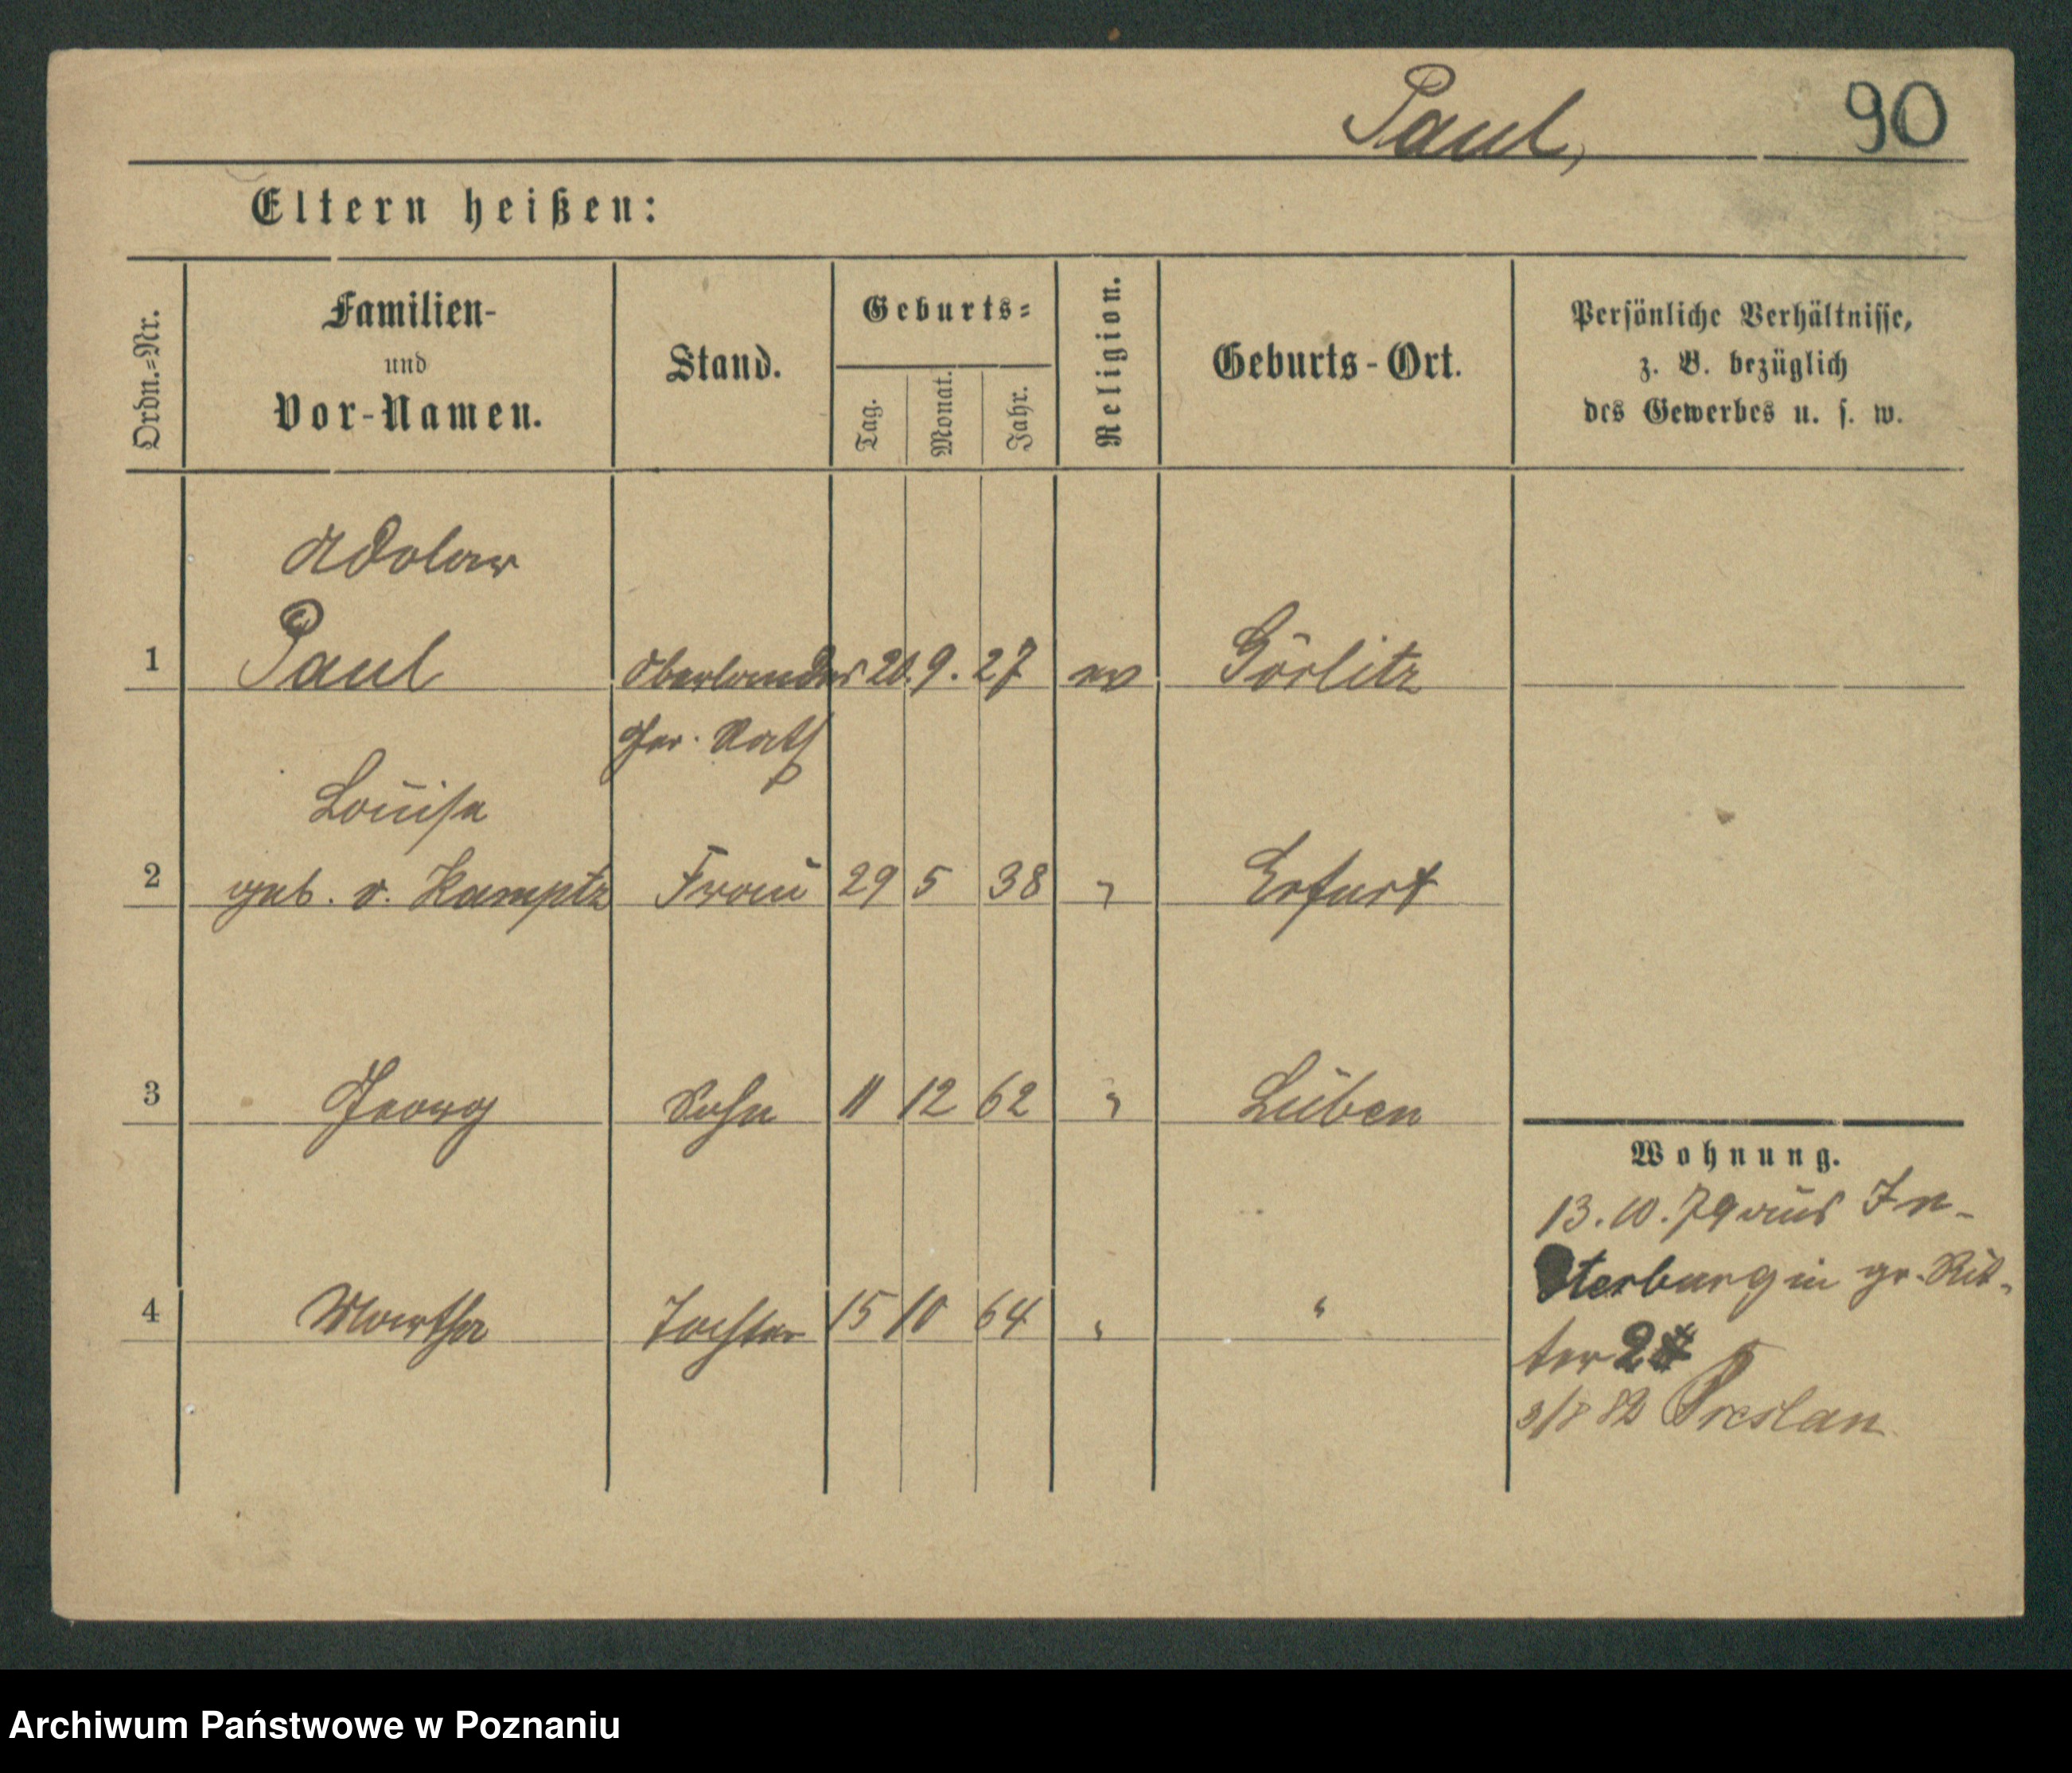 Paul, 90
Eltern heißen:
Ordn.-Nr.
Familien-
und
Vor-Namen.
Stand.
Geburts-
Tag.
Monat.
Jahr.
Religion.
Geburts-Ort.
Persönliche Verhältnisse,
z. B. bezüglich
des Gewerbes u. s. w.
Adolar
1 Paul Oberlandes 20. 9. 27 ev Görlitz
Ger. Rath
Louise
2 geb. v. Kamptz Frau 29 5 38 " Erfurt
3 Georg Sohn 11 12 62 " Lüben
Wohnung.
13. 10. 79 aus In-
sterburg in gr. Rit-
4 Martha Tochter 15 10 64 " "
ter 2
82 Breslau
Archiwum Państwowe w Poznaniu